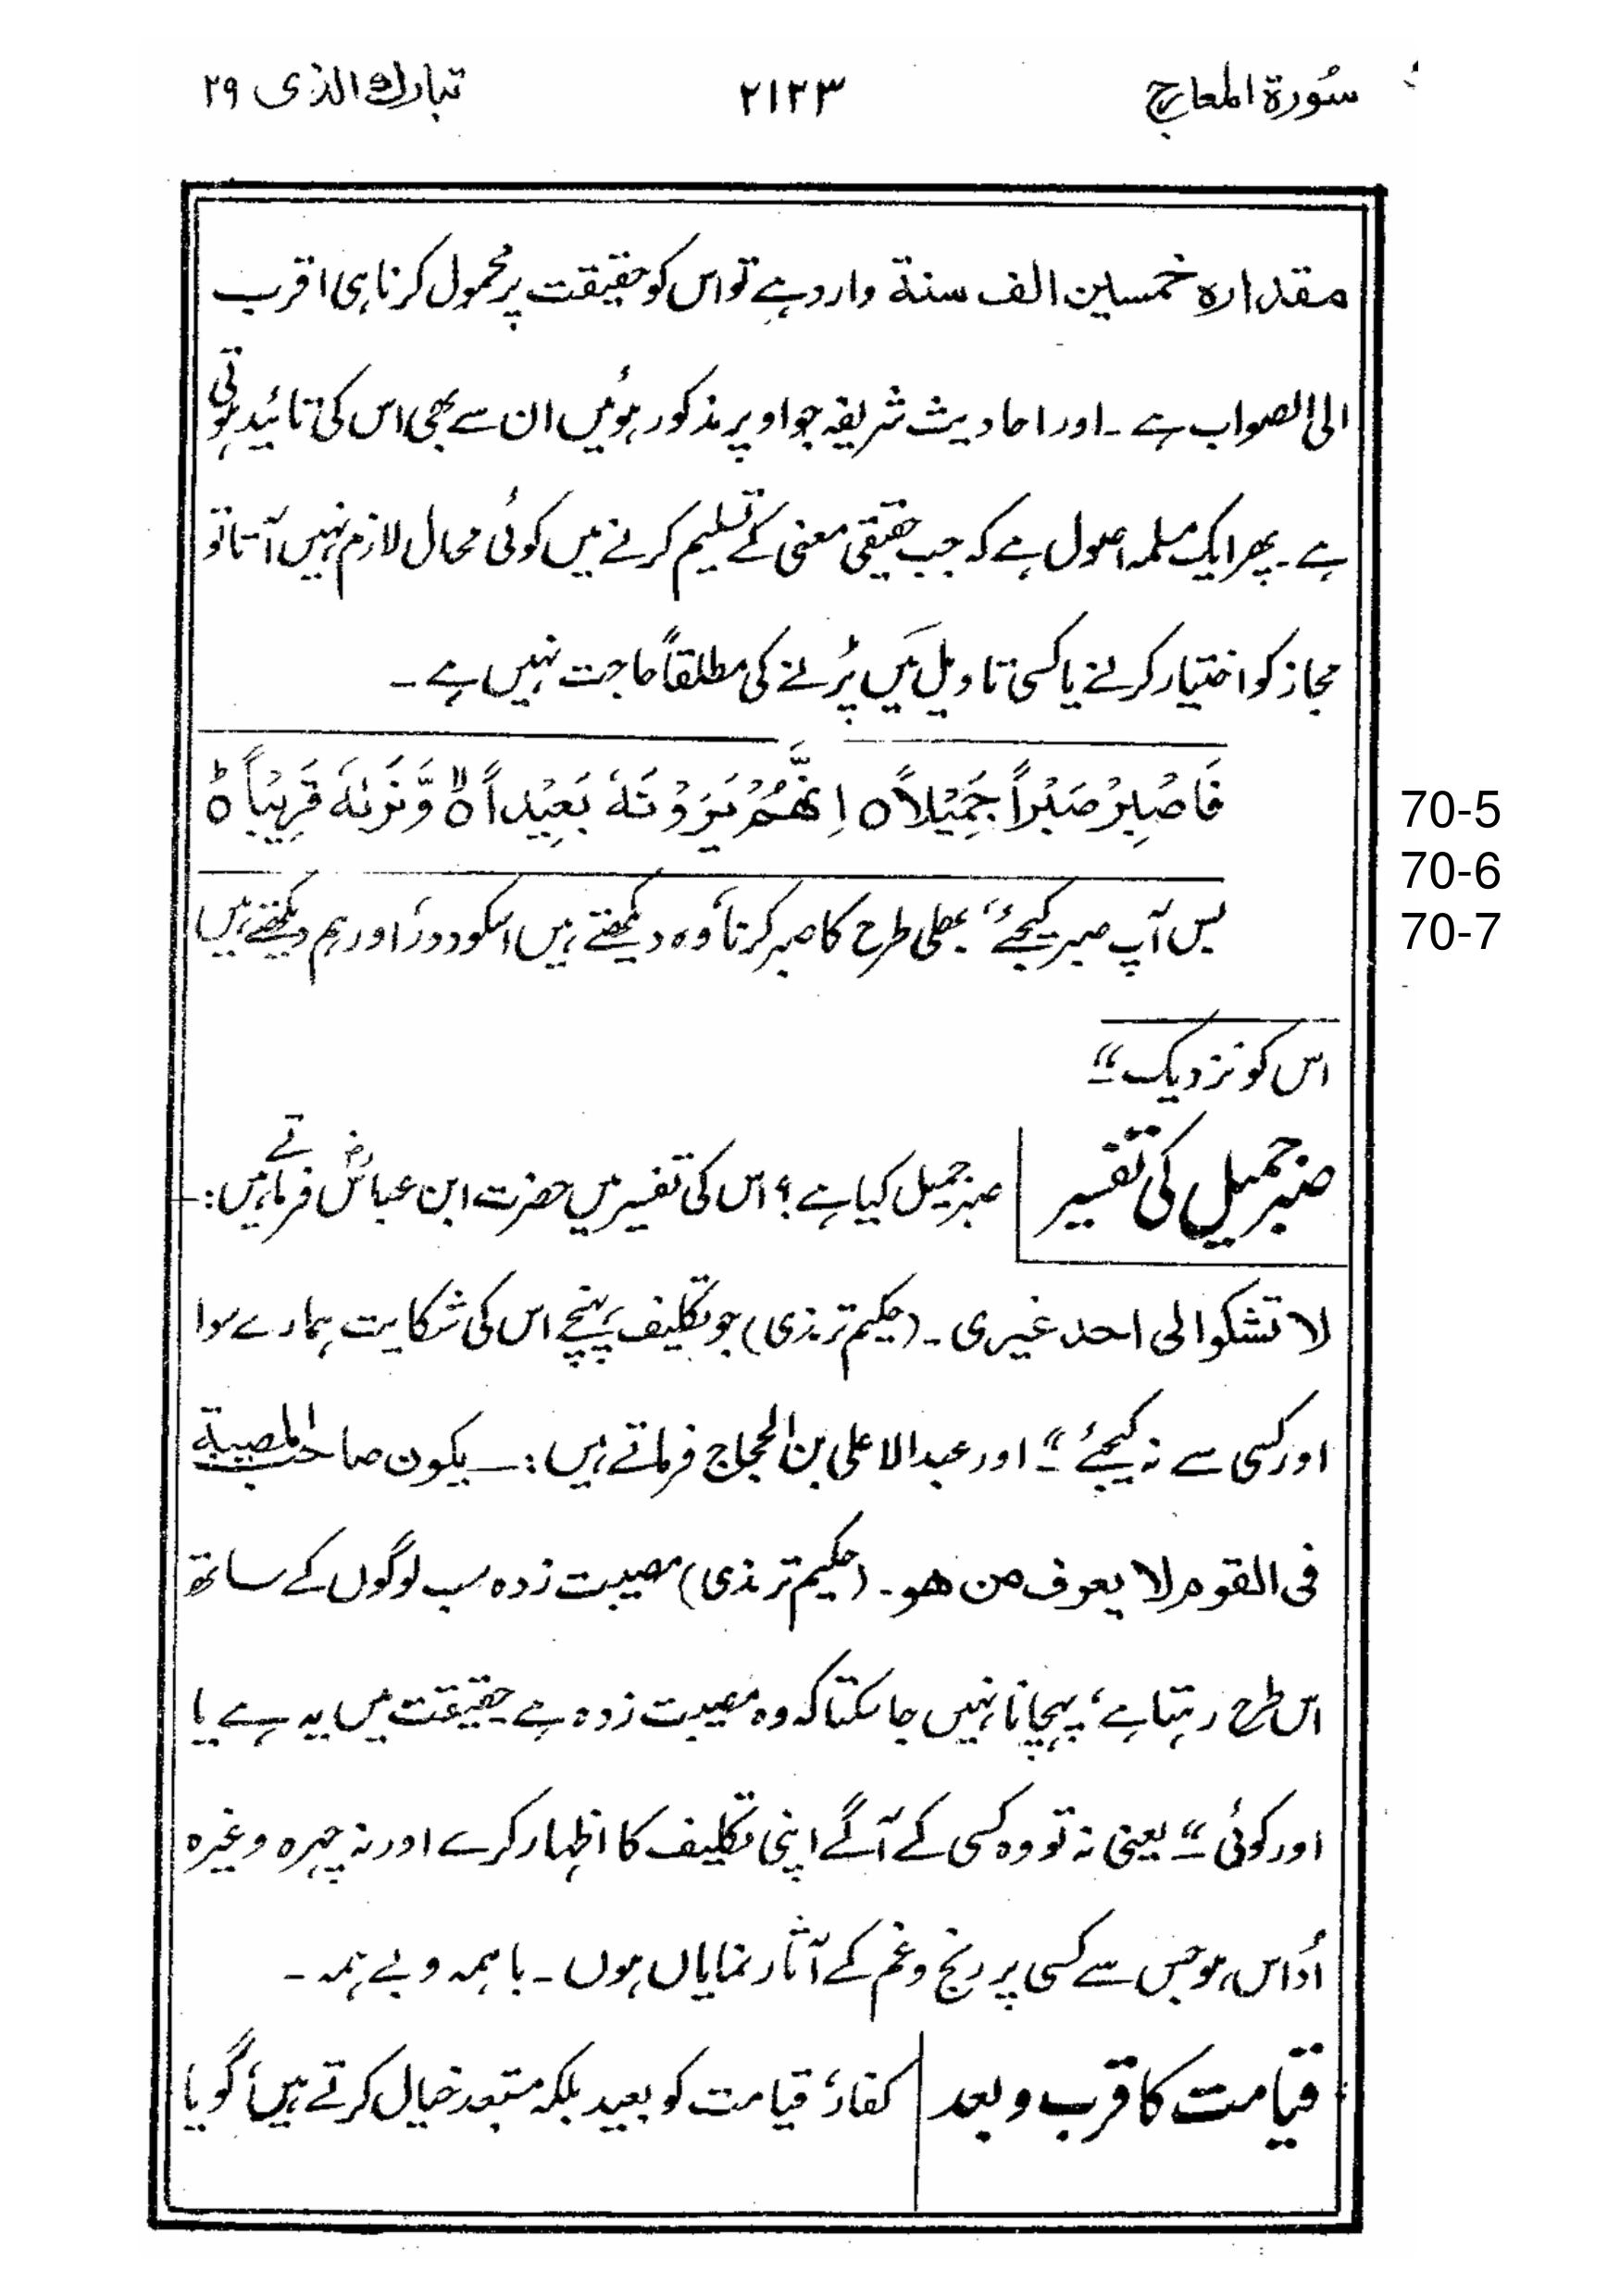 سُورة المعارج
۲۱۲۳
تبارك الذی ۲۹
مقداره خمسین الف سنة وارد ہے تو اس کو حقیقت پر محمول کرنا ہی اقرب
الی الصواب ہے ۔ اور احادیث شریفہ جو اوپر مذکور ہوئیں ان سے بھی اس کی تائید ہوتی
ہے ۔ پھر ایک مسلمہ اصول ہے کہ جب حقیقی معنی کے تسلیم کرنے میں کوئی محال لازم نہیں آتا تو
مجاز کو اختیار کرنے یا کسی تاویل میں پڑنے کی مطلقاً حاجت نہیں ہے ۔
فَاصْبِرْ صَبْراً جَمِیْلاً ہ اِنَّھُمْ یَرَوْنَہٗ بَعِیْداً ہ وَّنَرٰىهُ قَرِیْباً ہ
70-5
70-6
70-7
بس آپ صبر کیجئے، بھلی طرح کا صبر کرنا، وہ دیکھتے ہیں اسکو دور، اور ہم دیکھتے ہیں
اس کو نزدیک ”
صبر جمیل کی تفسیر
صبر جمیل کیا ہے ؟ اس کی تفسیر میں حضرت ابن عباسؓ فرماتے ہیں :ـ
لا تشکوا لی احد غیری ۔ (حکیم ترمذی) جو تکلیف پہنچے اس کی شکایت ہمارے سوا
اور کسی سے نہ کیجئے ” اور عبدالاعلی بن الحجاج فرماتے ہیں :ـ یکون صاحب المصیبة
فی القوم لا یعرف من ھو ۔ (حکیم ترمذی) مصیبت زدہ سب لوگوں کے ساتھ
اس طرح رہتا ہے، پہچانا نہیں جا سکتا کہ وہ مصیبت زدہ ہے حقیقت میں یہ ہے یا
اور کوئی ” یعنی نہ تو وہ کسی کے آگے اپنی تکلیف کا اظہار کرے اور نہ چہرہ وغیرہ
اُداس ہو جس سے کسی پر رنج و غم کے آثار نمایاں ہوں ۔ باہمہ و بے ہمہ ۔
قیامت کا قرب و بعد
کفار، قیامت کو بعید بلکہ مستبعد خیال کرتے ہیں، گویا